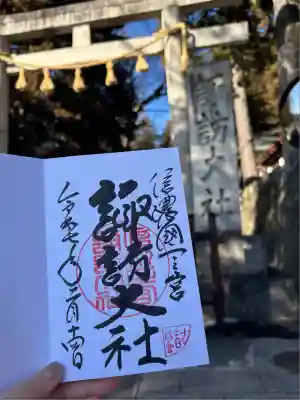 信濃國一之宮
諏訪大社
令和七年二月十四日
諏訪大社